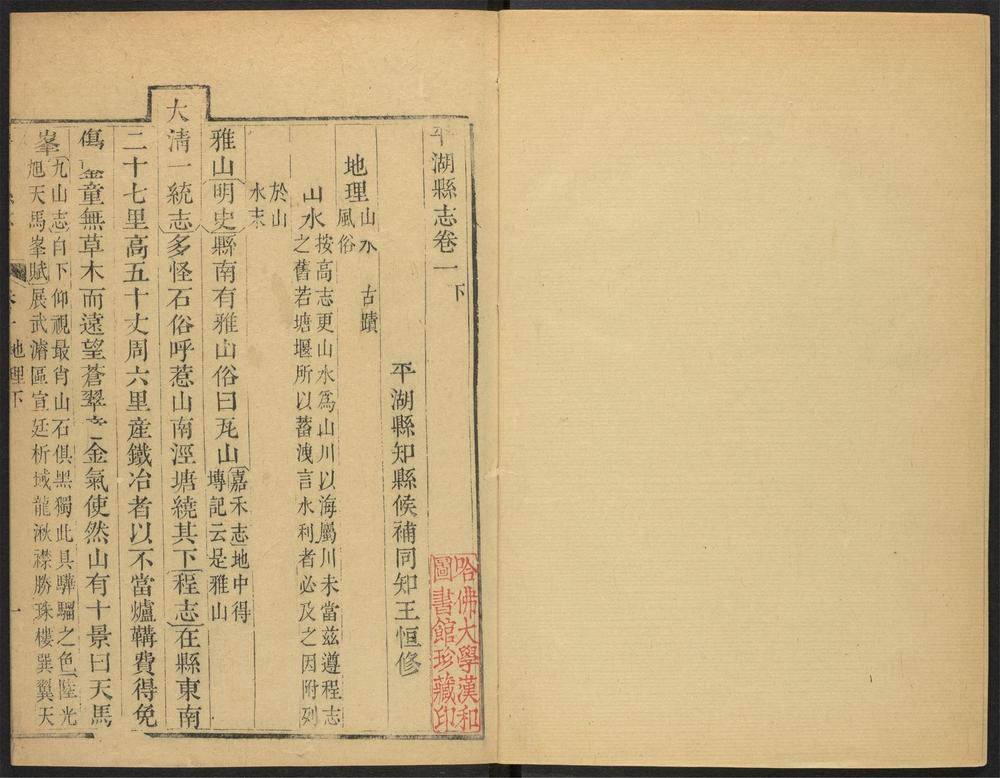 平湖縣志卷一下
哈佛大學漢和
圖書館珍藏印
平湖縣知縣候補同知王恒修
地理
山水 古蹟
風俗
山水
按高志更山水為山川以海屬川未當茲遵程志
之舊若塘堰所以蓄洩言水利者必及之因附列
於山
水末
雅山明史縣南有雅山俗曰瓦山
嘉禾志地中得
塼記云是雅山
大清一統志多怪石俗呼惹山南涇塘繞其下程志在縣東南
二十七里高五十丈周六里産鐵冶者以不當爐鞲費得免
傷 童無草木而遠望蒼翠 金氣使然山有十景曰天馬
峯
九山志自下仰視最肖山石俱黑獨此具驊騮之色陸光
旭天馬峯賦展武濬區宣廷析域龍湫襟勝珠樓巽翼天
地理下 一